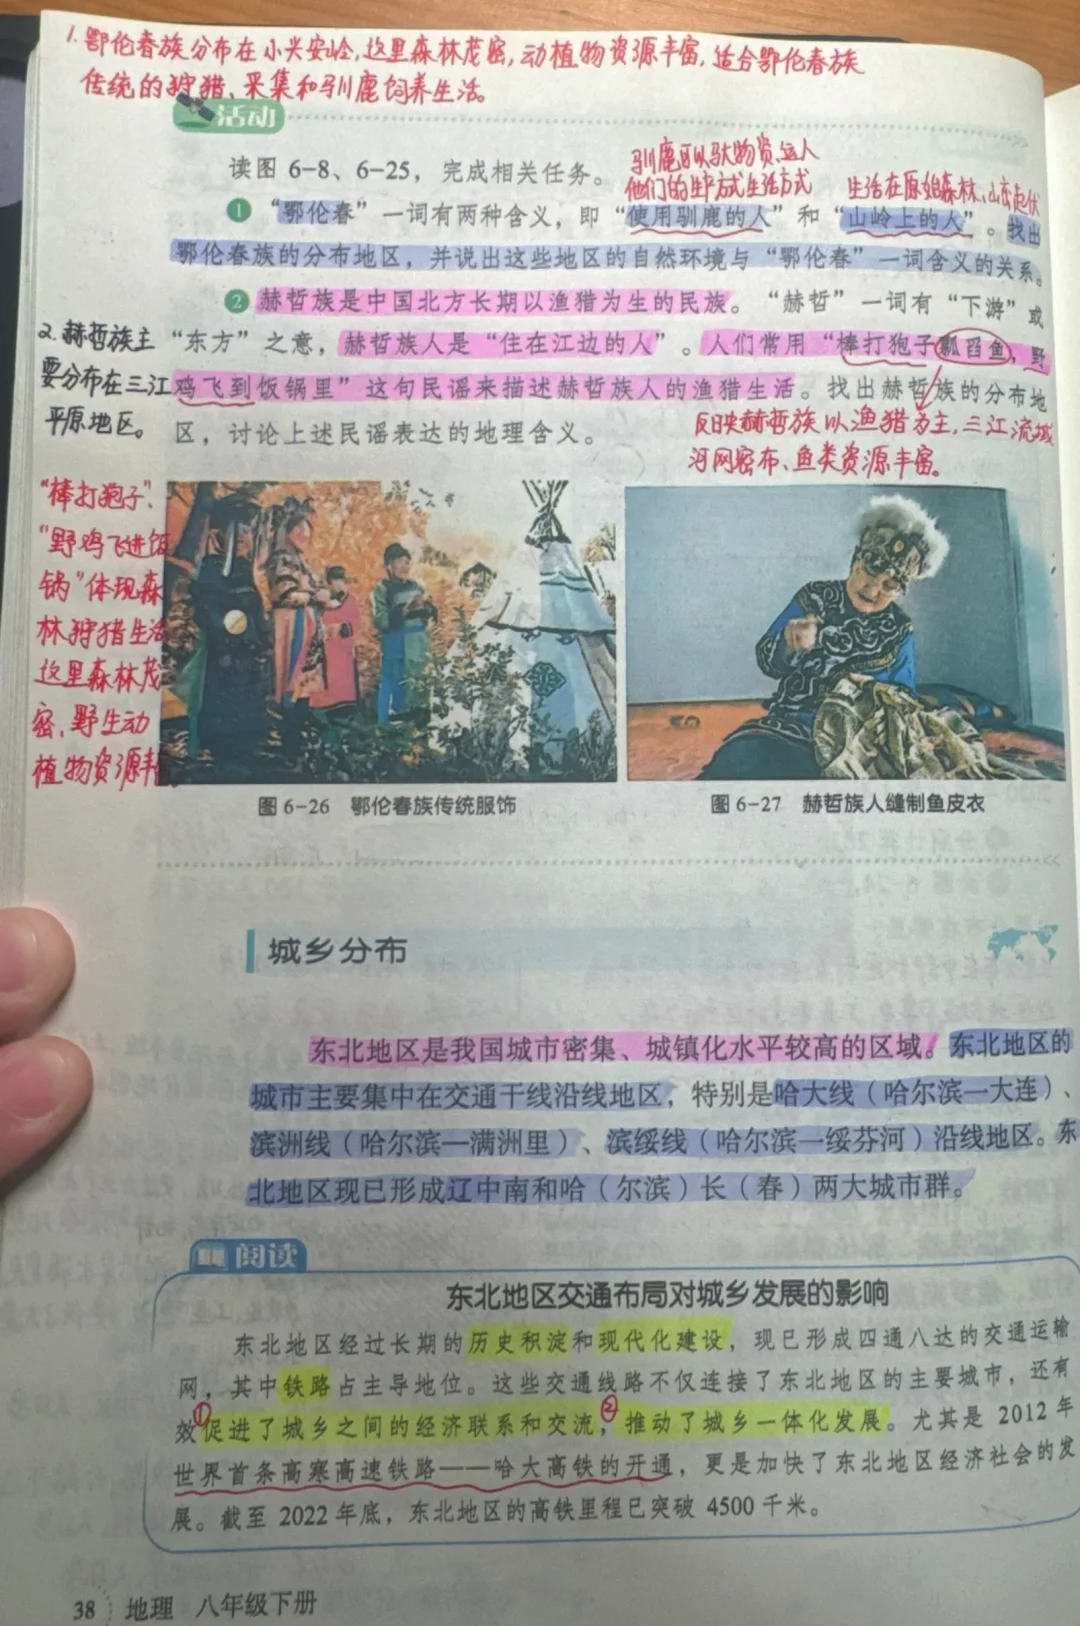 1.鄂伦春族分布在小兴安岭,这里森林茂密,动植物资源丰富,适合鄂伦春族
传统的狩猎、采集和驯鹿饲养生活。
活动
读图 6-8、6-25，完成相关任务。
驯鹿可以驮物资、运人
他们的生产方式生活方式
生活在原始森林、山峦起伏
1 “鄂伦春”一词有两种含义，即“使用驯鹿的人”和“山岭上的人”。找出
鄂伦春族的分布地区，并说出这些地区的自然环境与“鄂伦春”一词含义的关系。
2 赫哲族是中国北方长期以渔猎为生的民族。“赫哲”一词有“下游”或
“东方”之意，赫哲族人是“住在江边的人”。人们常用“棒打狍子瓢舀鱼，野
鸡飞到饭锅里”这句民谣来描述赫哲族人的渔猎生活。找出赫哲族的分布地
区，讨论上述民谣表达的地理含义。
2.赫哲族主
要分布在三江
平原地区。
反映赫哲族以渔猎为主,三江流域
河网密布、鱼类资源丰富。
“棒打狍子”、
“野鸡飞进饭
锅”体现森
林狩猎生活
这里森林茂
密、野生动
植物资源丰
图 6-26 鄂伦春族传统服饰
图 6-27 赫哲族人缝制鱼皮衣
城乡分布
东北地区是我国城市密集、城镇化水平较高的区域。东北地区的
城市主要集中在交通干线沿线地区，特别是哈大线（哈尔滨—大连）、
滨洲线（哈尔滨—满洲里）、滨绥线（哈尔滨—绥芬河）沿线地区。东
北地区现已形成辽中南和哈（尔滨）长（春）两大城市群。
阅读
东北地区交通布局对城乡发展的影响
东北地区经过长期的历史积淀和现代化建设，现已形成四通八达的交通运输
网，其中铁路占主导地位。这些交通线路不仅连接了东北地区的主要城市，还有
① ②
效促进了城乡之间的经济联系和交流，推动了城乡一体化发展。尤其是 2012 年
世界首条高寒高速铁路——哈大高铁的开通，更是加快了东北地区经济社会的发
展。截至 2022 年底，东北地区的高铁里程已突破 4500 千米。
38 地理 八年级下册